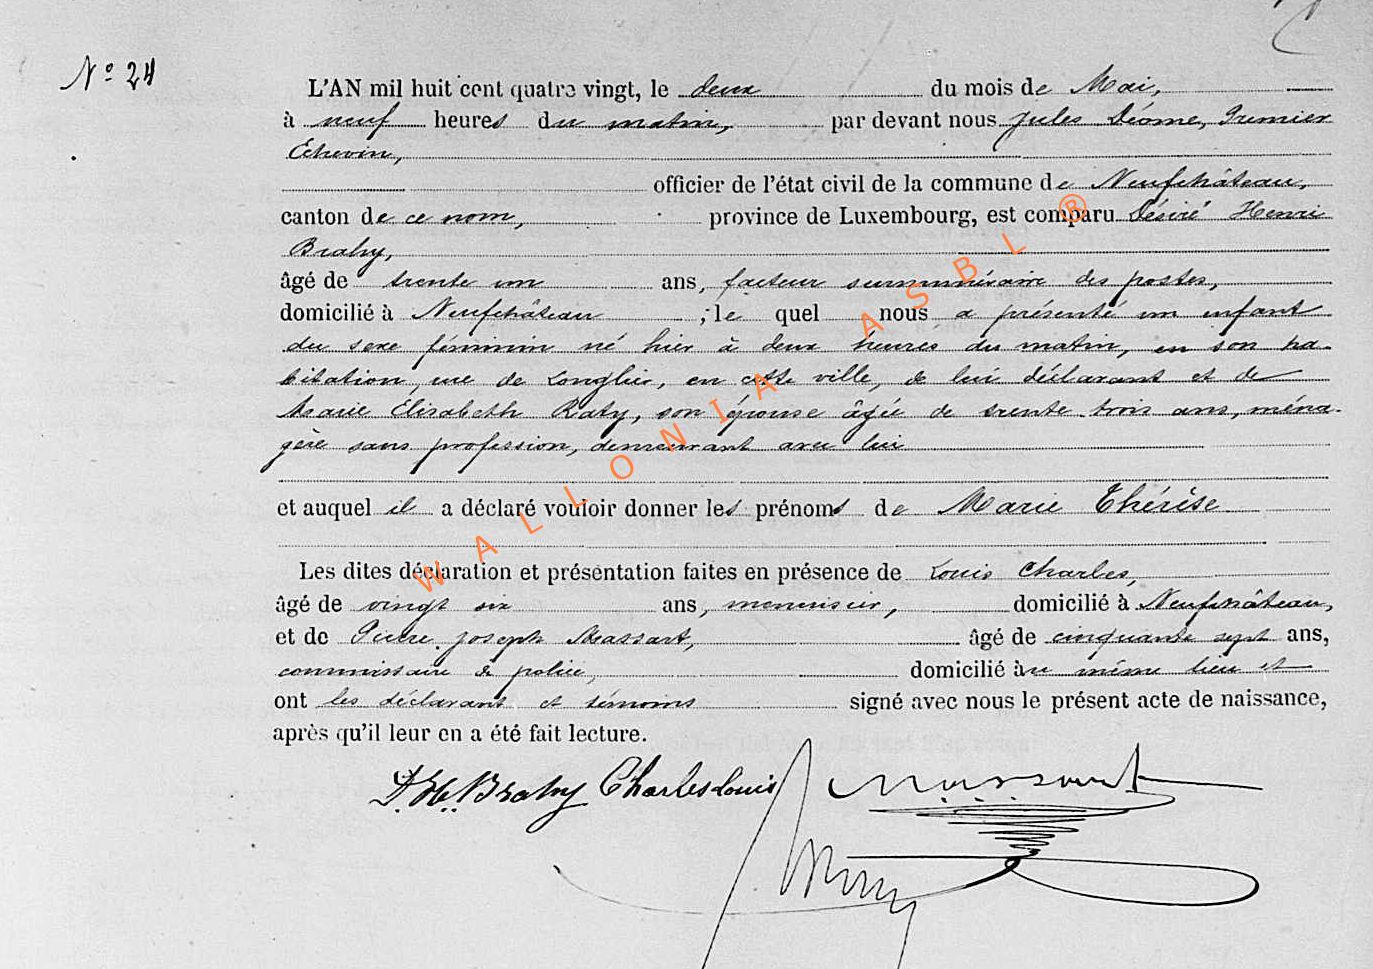 Nº 24
L'AN mil huit cent quatre vingt, le deux du mois de Mai,
à neuf heures du matin, par devant nous Jules Déome, Premier
Échevin,
officier de l'état civil de la commune de Neufchâteau,
canton de ce nom, province de Luxembourg, est comparu Désiré Henri
Brahy,
âgé de trente un ans, facteur surnuméraire des postes,
domicilié à Neufchâteau, le quel nous a présenté un enfant
du sexe féminin né hier à deux heures du matin, en son ha-
bitation, rue de Longlier, en cette ville, de lui déclarant et de
Marie Élisabeth Raty, son épouse âgée de trente trois ans, ména-
gère sans profession, demeurant avec lui
et auquel il a déclaré vouloir donner les prénoms de Marie Thérèse
Les dites déclaration et présentation faites en présence de Louis Charles,
âgé de vingt six ans, menuisier, domicilié à Neufchâteau,
et de Pierre Joseph Massart, âgé de cinquante sept ans,
commissaire de police, domicilié au même lieu et
ont les déclarant et témoins signé avec nous le présent acte de naissance,
après qu'il leur en a été fait lecture.
D. H. Brahy Charles Louis Massart
WALLONIA ASBL ®